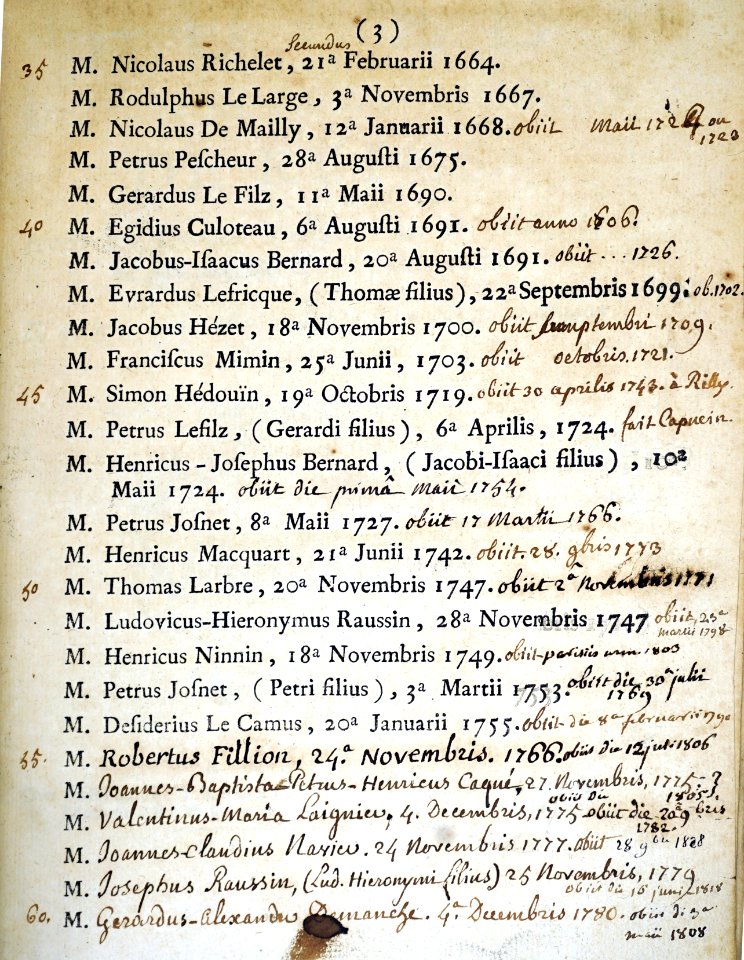 (3)
Secundus
35 M. Nicolaus Richelet, 21ª Februarii 1664.
M. Rodulphus Le Large, 3ª Novembris 1667.
M. Nicolaus De Mailly, 12ª Januarii 1668. obiit Maii ou 1723
M. Petrus Peſcheur, 28ª Auguſti 1675.
M. Gerardus Le Filz, 11ª Maii 1690.
40 M. Egidius Culoteau, 6ª Auguſti 1691. obiit anno 1606.
M. Jacobus-Iſaacus Bernard, 20ª Auguſti 1691. obiit ... 1726.
M. Evrardus Lefricque, (Thomæ filius), 22ª Septembris 1699. ob. 1702.
M. Jacobus Hézet, 18ª Novembris 1700. obiit 1709.
M. Franciſcus Mimin, 25ª Junii, 1703. obiit octobris. 1721.
45 M. Simon Hédouïn, 19ª Octobris 1719. obiit 30 aprilis 1743. à Rilly.
M. Petrus Lefilz, (Gerardi filius), 6ª Aprilis, 1724. fait Capucin.
M. Henricus-Joſephus Bernard, (Jacobi-Iſaaci filius), 10ª
Maii 1724. obiit die primâ Maii 1754.
M. Petrus Joſnet, 8ª Maii 1727. obiit 17 Martii 1766.
M. Henricus Macquart, 21ª Junii 1742. obiit. 28. 9bris 1773
50 M. Thomas Larbre, 20ª Novembris 1747. obiit 2ª Novembris 1771
M. Ludovicus-Hieronymus Rauſſin, 28ª Novembris 1747 obiit, 23ª
martii 1798
M. Henricus Ninnin, 18ª Novembris 1749. obiit parisiis 1803
M. Petrus Joſnet, (Petri filius), 3ª Martii 1753. obiit die 30ª julii
1769
M. Deſiderius Le Camus, 20ª Januarii 1755. obiit die 8ª februarii 1790
55. M. Robertus Fillion, 24.ª Novembris. 1766. obiit die 12 juli 1806
M. Joannes-Baptista-Petrus-Henricus Caqué, 27. Novembris, 1775
obiit die 1805.
M. Valentinus-Maria Laignier, 4. Decembris, 1775 obiit die 20ª 9bris
1782.
M. Joannes-Claudius Navier. 24 Novembris 1777. obiit 28 9bris 1828
M. Josephus Raussin, (Lud. Hieronymi filius) 25 Novembris, 1779
obiit die 16 junii 1818
60. M. Gerardus-Alexander Demanche. 4.ª Decembris 1780. obiit di 3ª
maii 1808